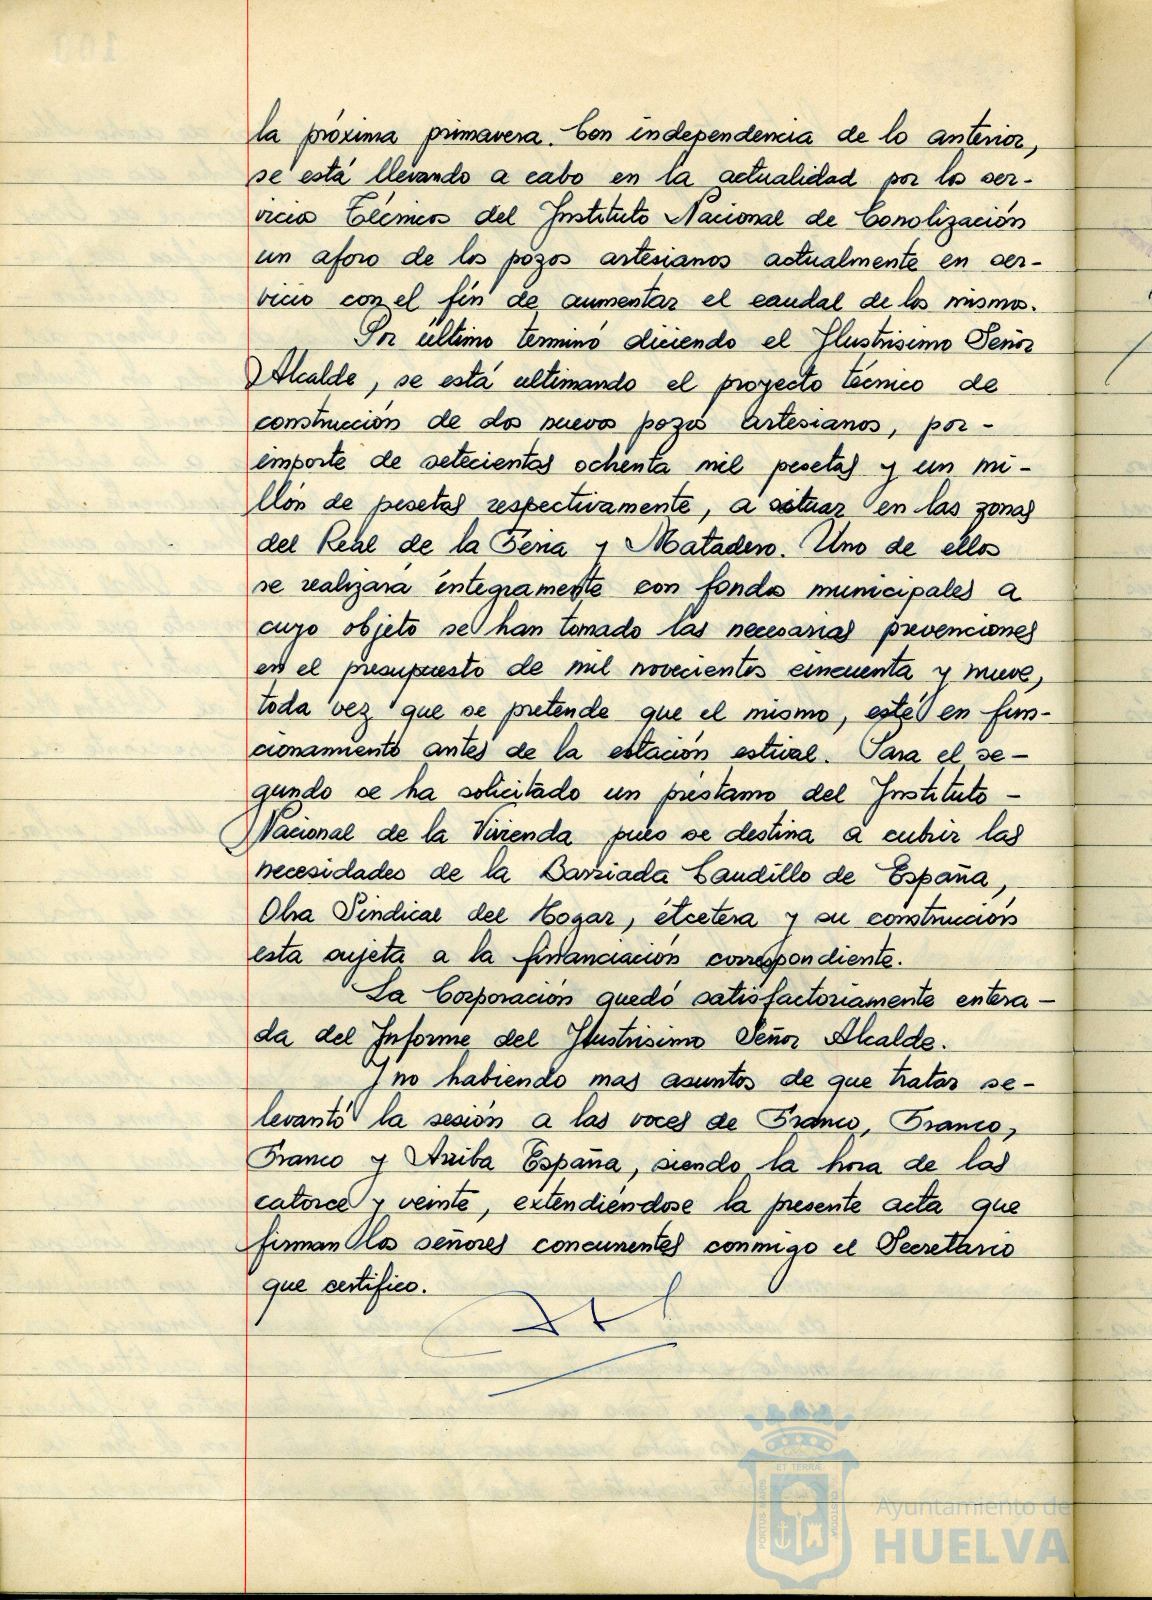 la próxima primavera. Con independencia de lo anterior,
se está llevando a cabo en la actualidad por los ser-
vicios Técnicos del Instituto Nacional de Conolización
un aforo de los pozos artesianos actualmente en ser-
vicio con el fin de aumentar el caudal de los mismos.
Por último terminó diciendo el Ilustrisimo Señor
Alcalde, se está ultimando el proyecto técnico de
construcción de dos nuevos pozos artesianos, por-
importe de setecientas ochenta mil pesetas y un mi-
llón de pesetas respectivamente, a situar en las zonas
del Real de la Feria y Matadero. Uno de ellos
se realizará integramente con fondos municipales a
cuyo objeto se han tomado las necesarias prevenciones
en el presupuesto de mil novecientos cincuenta y nueve,
toda vez que se pretende que el mismo, esté en fun-
cionamiento antes de la estación estival. Para el se-
gundo se ha solicitado un préstamo del Instituto -
Nacional de la Vivienda pues se destina a cubrir las
necesidades de la Barriada Caudillo de España,
Obra Sindical del Hogar, étcetera y su construcción
esta sujeta a la financiación correspondiente.
La Corporación quedó satisfactoriamente entera-
da del Informe del Ilustrisimo Señor Alcalde.
Y no habiendo mas asuntos de que tratar se-
levantó la sesión a las voces de Franco, Franco,
Franco y Arriba España, siendo la hora de las
catorce y veinte, extendiéndose la presente acta que
firman los señores concurrentes conmigo el Secretario
que certifico.
ET TERRAE
PORTUS MARIS
CUSTODIA
Ayuntamiento de
HUELVA